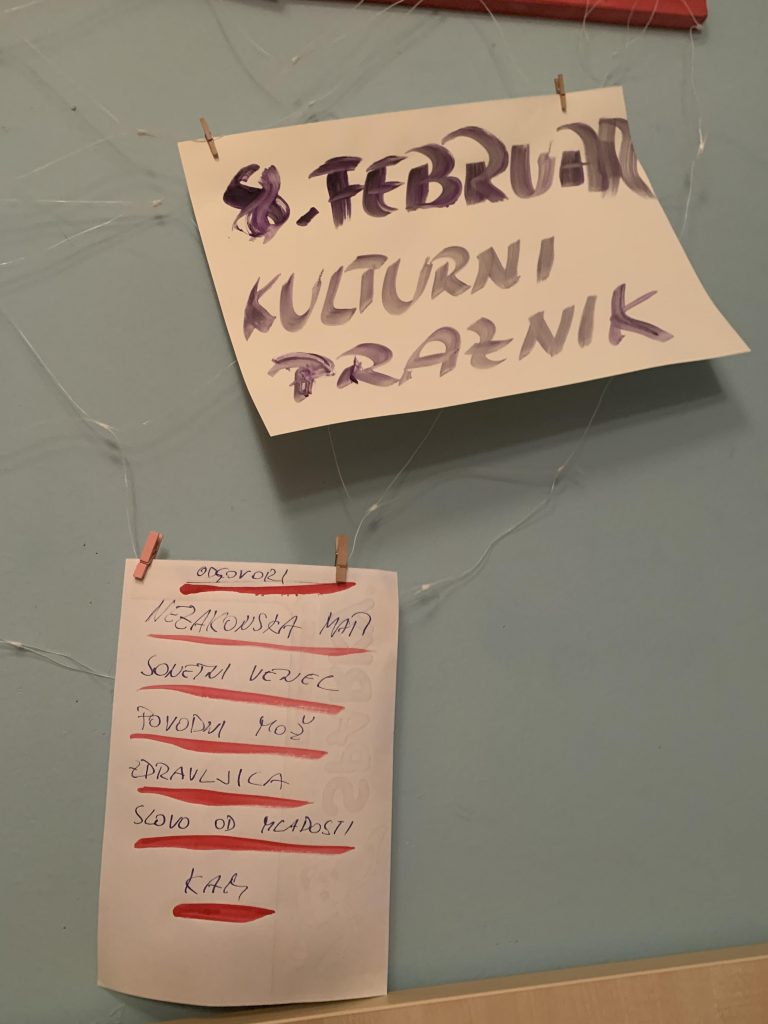 8. FEBRUAR
KULTURNI
PRAZNIK
ODGOVORI
NEZAKONSKA MATI
SONETNI VENEC
POVODNI MOŽ
ZDRAVLJICA
SLOVO OD MLADOSTI
KAM